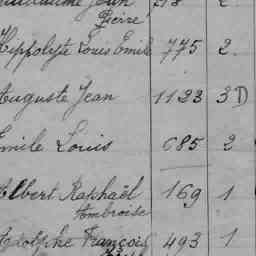 Guillaume Jean
Pierre
Hippolyte Louis Emile 775 2
Auguste Jean 1123 3 D
Emile Louis 685 2
Albert Raphaël 169 1
Ambroise
Adolphe François 493 1